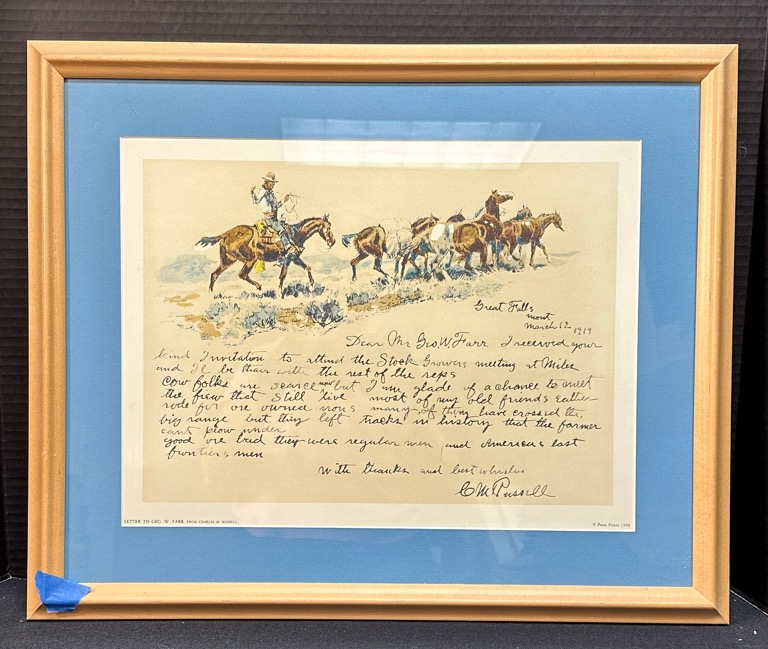 Great Falls
Mont
March 12 1919
Dear Mr Geo. W. Farr I received your
kind Invitation to attend the Stock Growers meeting at Miles
and I'l be thair with the rest of the reps
cow folks are scarce now but I am glade of a chance to meet
the fiew that still live most of my old friends eather
rode for ore owned irons many of them have crossed the
big range but they left tracks in history that the farmer
cant plow under
good ore bad they were regular men and Americas last
frontiers men
With thanks and best whishes
C M Russell
LETTER TO GEO. W. FARR FROM CHARLES M. RUSSELL